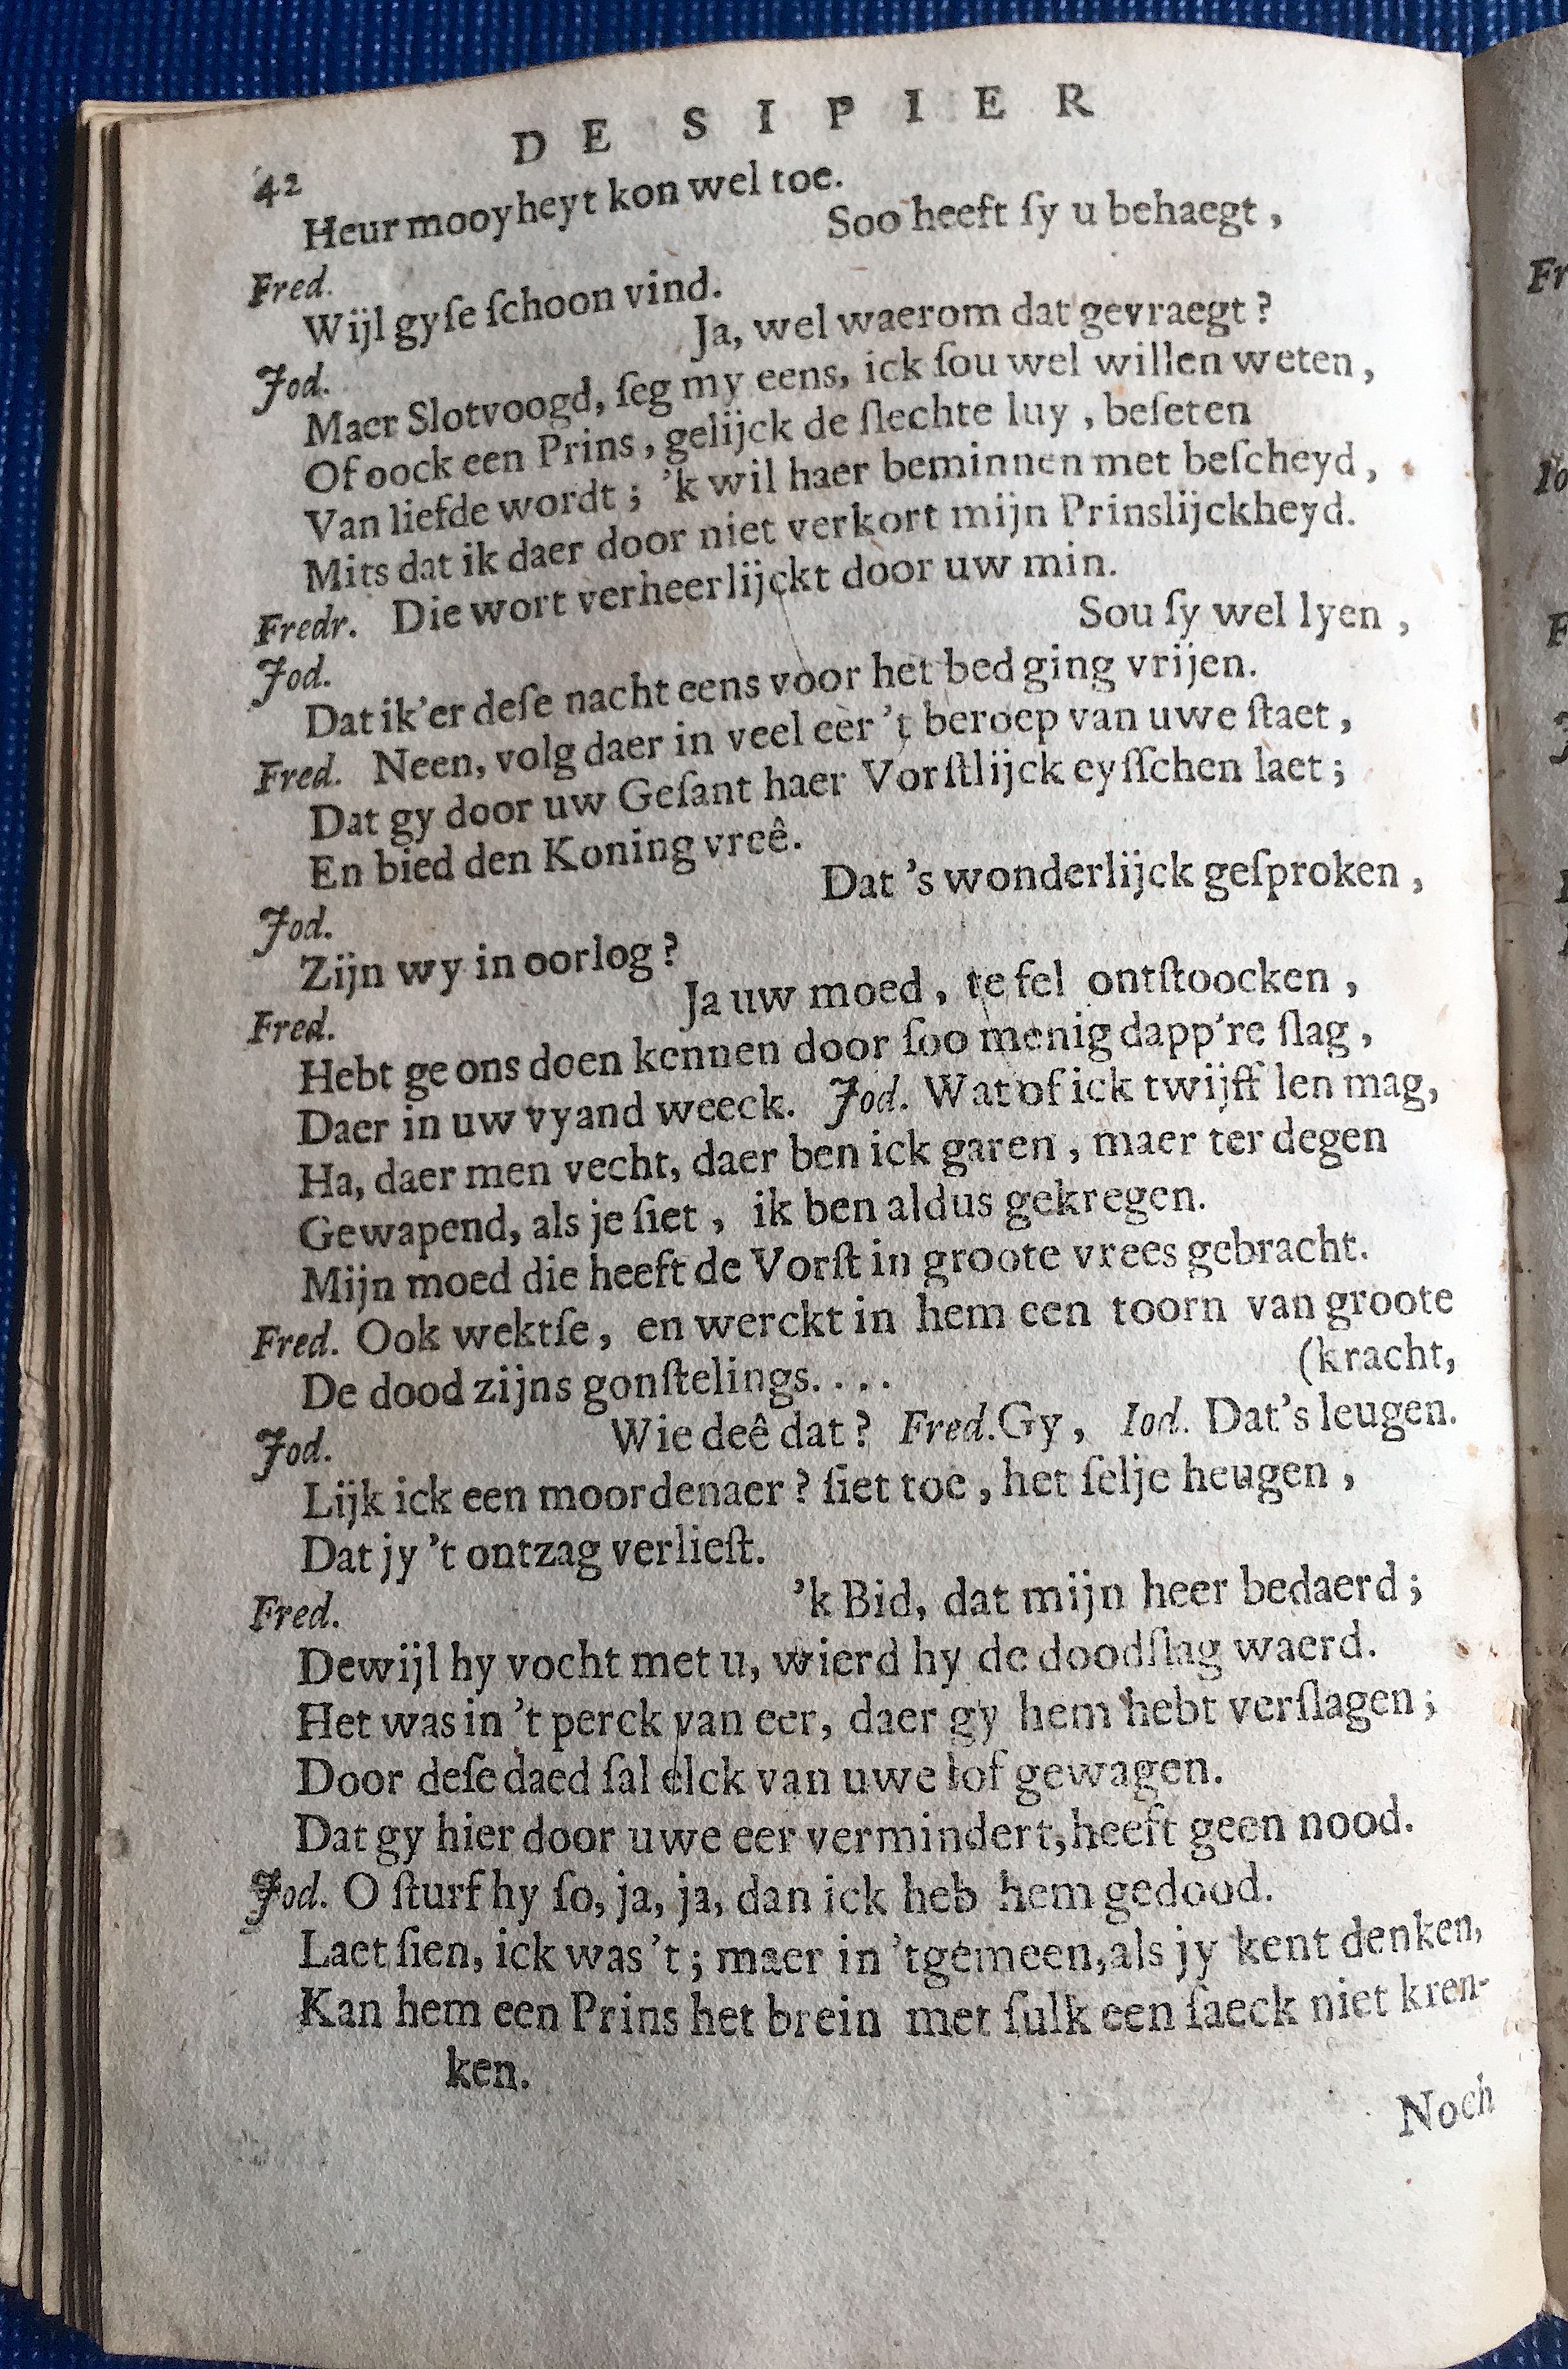 42 DE SIPIER
Heur mooyheyt kon wel toe.
Fred. Soo heeft ſy u behaegt,
Wijl gyſe ſchoon vind.
Jod. Ja, wel waerom dat gevraegt?
Maer Slotvoogd, ſeg my eens, ick ſou wel willen weten,
Of oock een Prins, gelijck de ſlechte luy, beſeten
Van liefde wordt; 'k wil haer beminnen met beſcheyd,
Mits dat ik daer door niet verkort mijn Prinslijckheyd.
Fredr. Die wort verheerlijckt door uw min.
Jod. Sou ſy wel lyen,
Dat ik'er deſe nacht eens voor het bed ging vrijen.
Fred. Neen, volg daer in veel eer 't beroep van uwe ſtaet,
Dat gy door uw Geſant haer Vorſtlijck eyſſchen laet;
En bied den Koning vreê.
Jod. Dat 's wonderlijck geſproken,
Zijn wy in oorlog?
Fred. Ja uw moed, te fel ontſtoocken,
Hebt ge ons doen kennen door ſoo menig dapp're ſlag,
Daer in uw vyand weeck. Jod. Wat of ick twijff len mag,
Ha, daer men vecht, daer ben ick garen, maer ter degen
Gewapend, als je ſiet, ik ben aldus gekregen.
Mijn moed die heeft de Vorſt in groote vrees gebracht.
Fred. Ook wektſe, en werckt in hem een toorn van groote
(kracht,
De dood zijns gonſtelings....
Jod. Wie deê dat? Fred. Gy, Iod. Dat's leugen.
Lijk ick een moordenaer? ſiet toe, het ſelje heugen,
Dat jy 't ontzag verlieſt.
Fred. 'k Bid, dat mijn heer bedaerd;
Dewijl hy vocht met u, wierd hy de doodſlag waerd.
Het was in 't perck van eer, daer gy hem hebt verſlagen;
Door deſe daed ſal elck van uwe lof gewagen.
Dat gy hier door uwe eer vermindert, heeft geen nood.
Jod. O ſturf hy ſo, ja, ja, dan ick heb hem gedood.
Laet ſien, ick was 't; maer in 'tgemeen, als jy kent denken,
Kan hem een Prins het brein met ſulk een ſaeck niet kren-
ken.
Noch